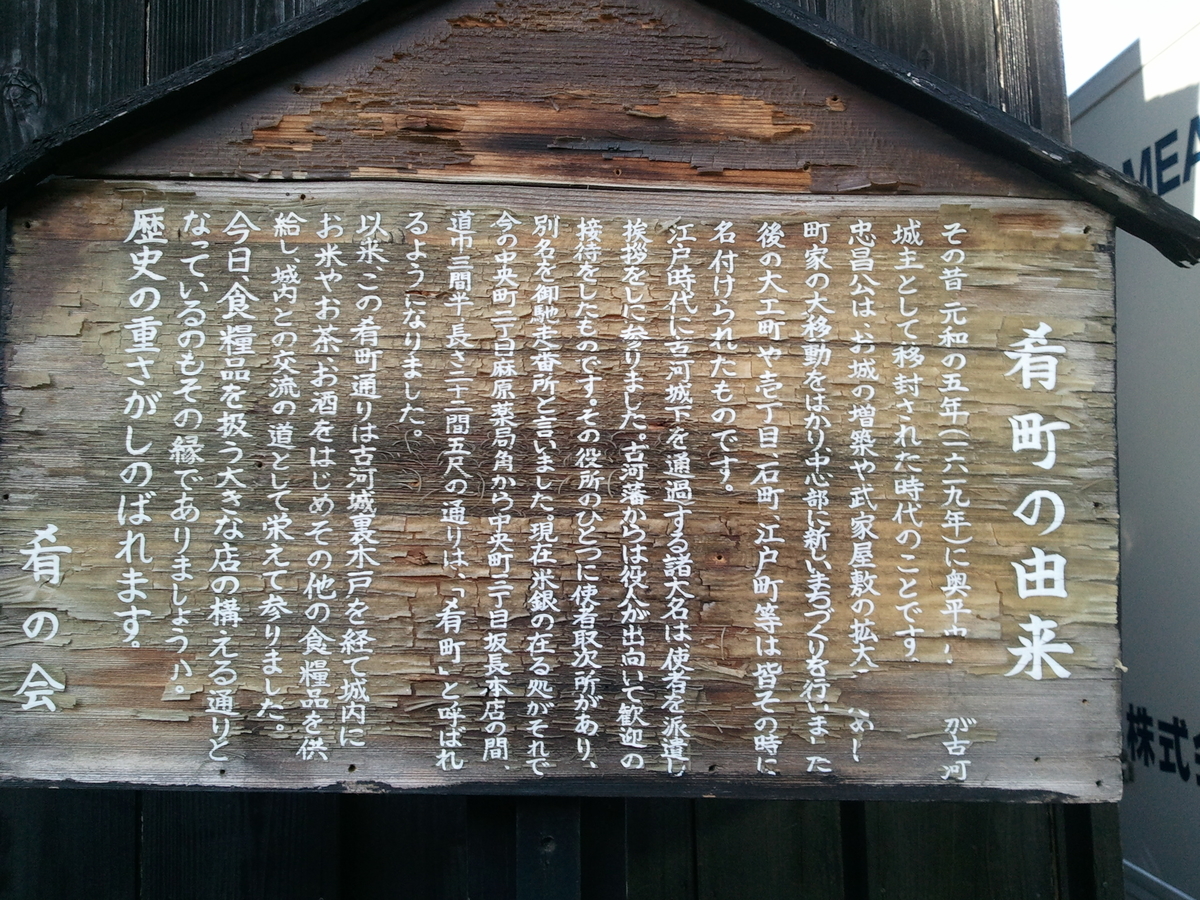 肴町の由来
その昔 元和の五年(一六一九年)に奥平 が古河
城主として移封された時代のことです。
忠昌公は、お城の増築や武家屋敷の拡大
町家の大移動をはかり、中心部に新しいまちづくりを行いました
後の大工町や壱丁目、石町、江戸町等は皆その時に
名付けられたものです。
江戸時代に古河城下を通過する諸大名は使者を派遣し
挨拶をしに参りました。古河藩からは役人が出向いて歓迎の
接待をしたものです。その役所のひとつに使者取次所があり、
別名を御馳走番所と言いました、現在米銀の在る処がそれで
今の中央町二丁目麻原薬局角から中央町三丁目坂長本店の間、
道巾三間半、長さ二十二間五尺の通りは、「肴町」と呼ばれ
るようになりました。
以来、この肴町通りは古河城裏木戸を経て城内に
お米やお茶、お酒をはじめその他の食糧品を供
給し、城内との交流の道として栄えて参りました。
今日、食糧品を扱う大きな店の構える通りと
なっているのもその縁でありましょうか。
歴史の重さがしのばれます。
肴の会
MEA
株式会